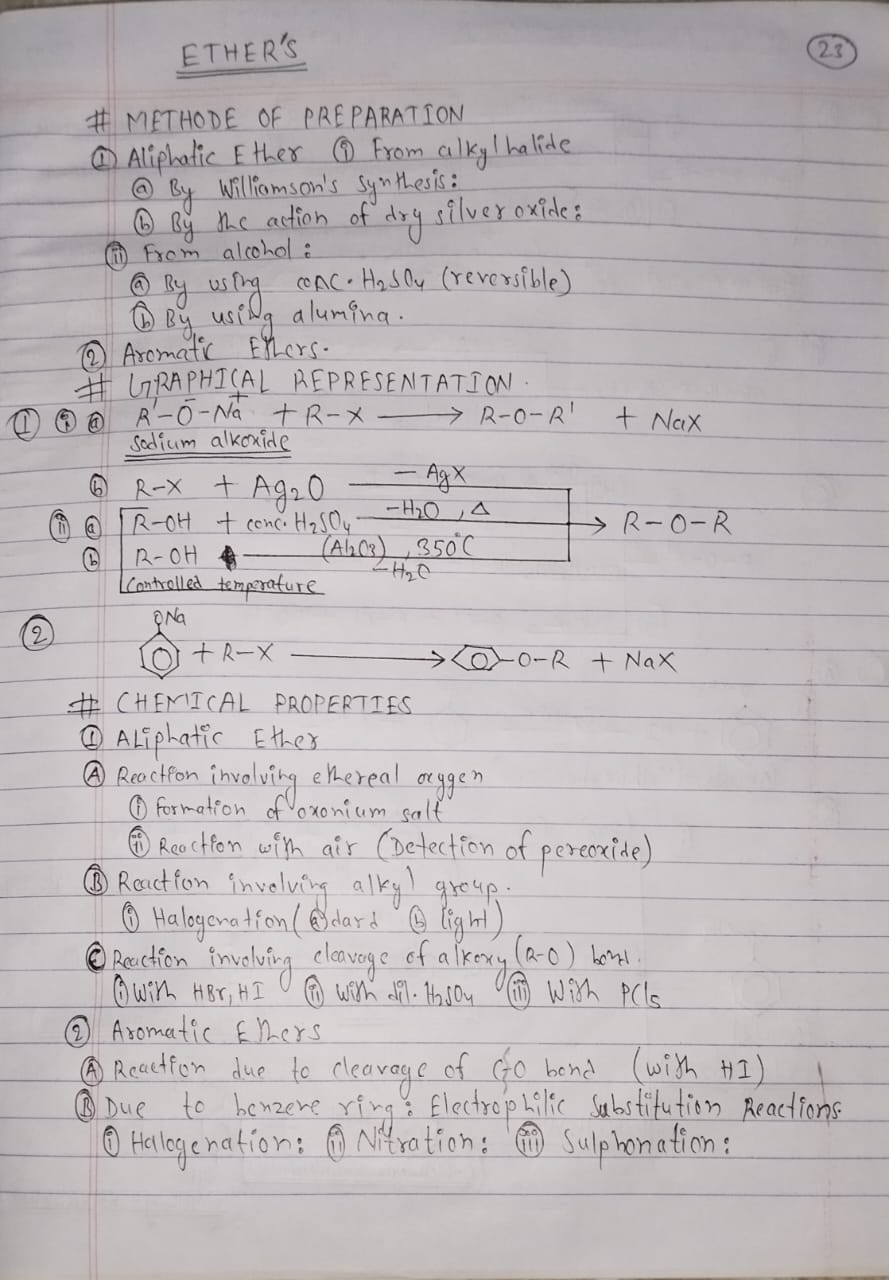 ETHER'S
23
# METHODE OF PREPARATION
① Aliphatic Ether ⓘ From alkyl halide
ⓐ By Williamson's Synthesis:
ⓑ By the action of dry silver oxide:
ⓘⓘ From alcohol:
ⓐ By using conc. H₂SO₄ (reversible)
ⓑ By using alumina.
② Aromatic Ethers.
# GRAPHICAL REPRESENTATION.
① ⓘ ⓐ R'-Ō-Na⁺ + R-X ⟶ R-O-R' + NaX
Sodium alkoxide
ⓑ R-X + Ag₂O — AgX
ⓘⓘ ⓐ R-OH + conc. H₂SO₄ -H₂O, Δ → R-O-R
ⓑ R-OH (Al₂O₃), 350°C
-H₂O
Controlled temperature
ONa
② + R-X ⟶ -O-R + NaX
# CHEMICAL PROPERTIES
① ALiphatic Ether
Ⓐ Reaction involving ethereal oxygen
ⓘ Formation of oxonium salt
ⓘⓘ Reaction with air (Detection of pereoxide)
Ⓑ Reaction involving alkyl group.
ⓘ Halogenation (ⓐ dard ⓑ light)
Ⓒ Reaction involving cleavage of alkoxy (R-O) bond.
ⓘ With HBr, HI ⓘⓘ with dil. H₂SO₄ ⓘⓘⓘ With PCl₅
② Aromatic Ethers
Ⓐ Reaction due to cleavage of C-O bond (with HI)
Ⓑ Due to benzene ring: Electrophilic Substitution Reactions
ⓘ Halogenation: ⓘⓘ Nitration: ⓘⓘⓘ Sulphonation: